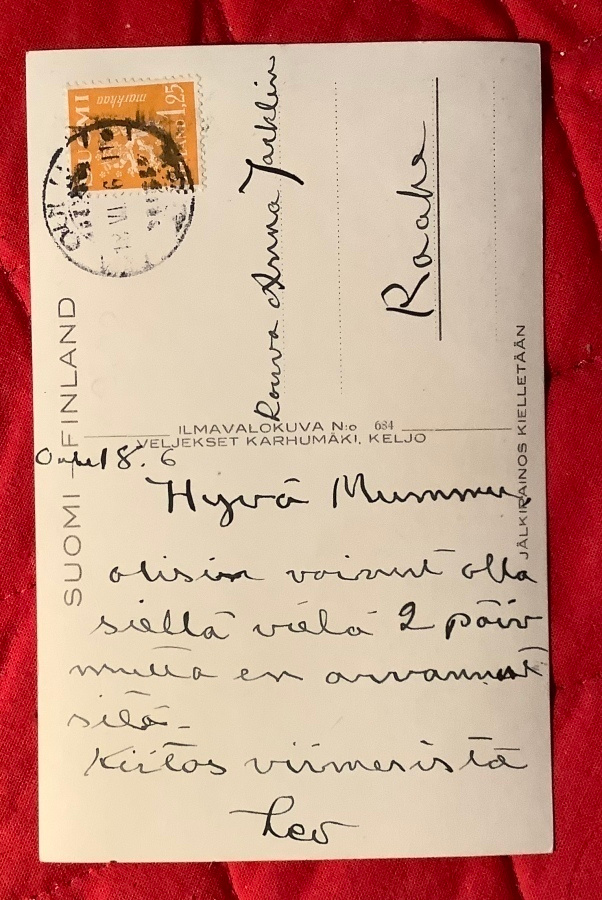 SUOMI
markkaa
1,25
SUOMI — FINLAND
Rouva Anna Jacklin
Raahe
ILMAVALOKUVA N:o 684
VELJEKSET KARHUMÄKI, KELJO
JÄLKIPAINOS KIELLETÄÄN
18. 6
Hyvä Mummu
olisin voinut olla
siellä vielä 2 päiv
mutta en arvannut
sitä -
Kiitos viimeisistä